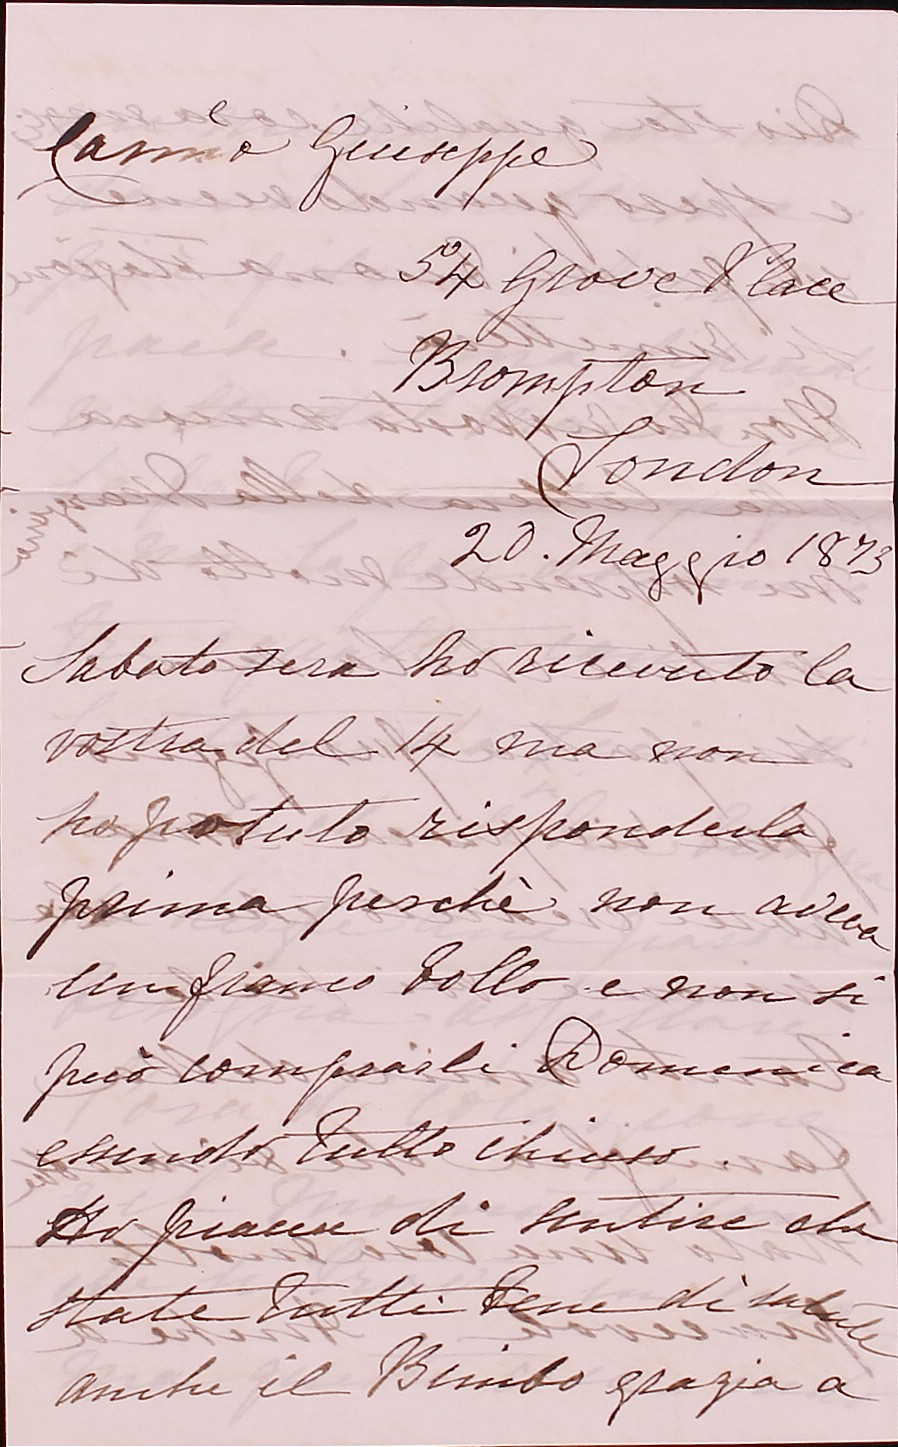 Carmo Giuseppe
54 Grove Place
Brompton
London
20. Maggio 1873
Sabato sera ho ricevuto la
vostra del 14 ma non
ho potuto risponderla
prima perchè non aveva
un franco bollo e non si
può comprarli Domenica
essendo tutto chiuso.
Ho piacere di sentire che
state tutti bene di salute
anche il Bimbo grazia a